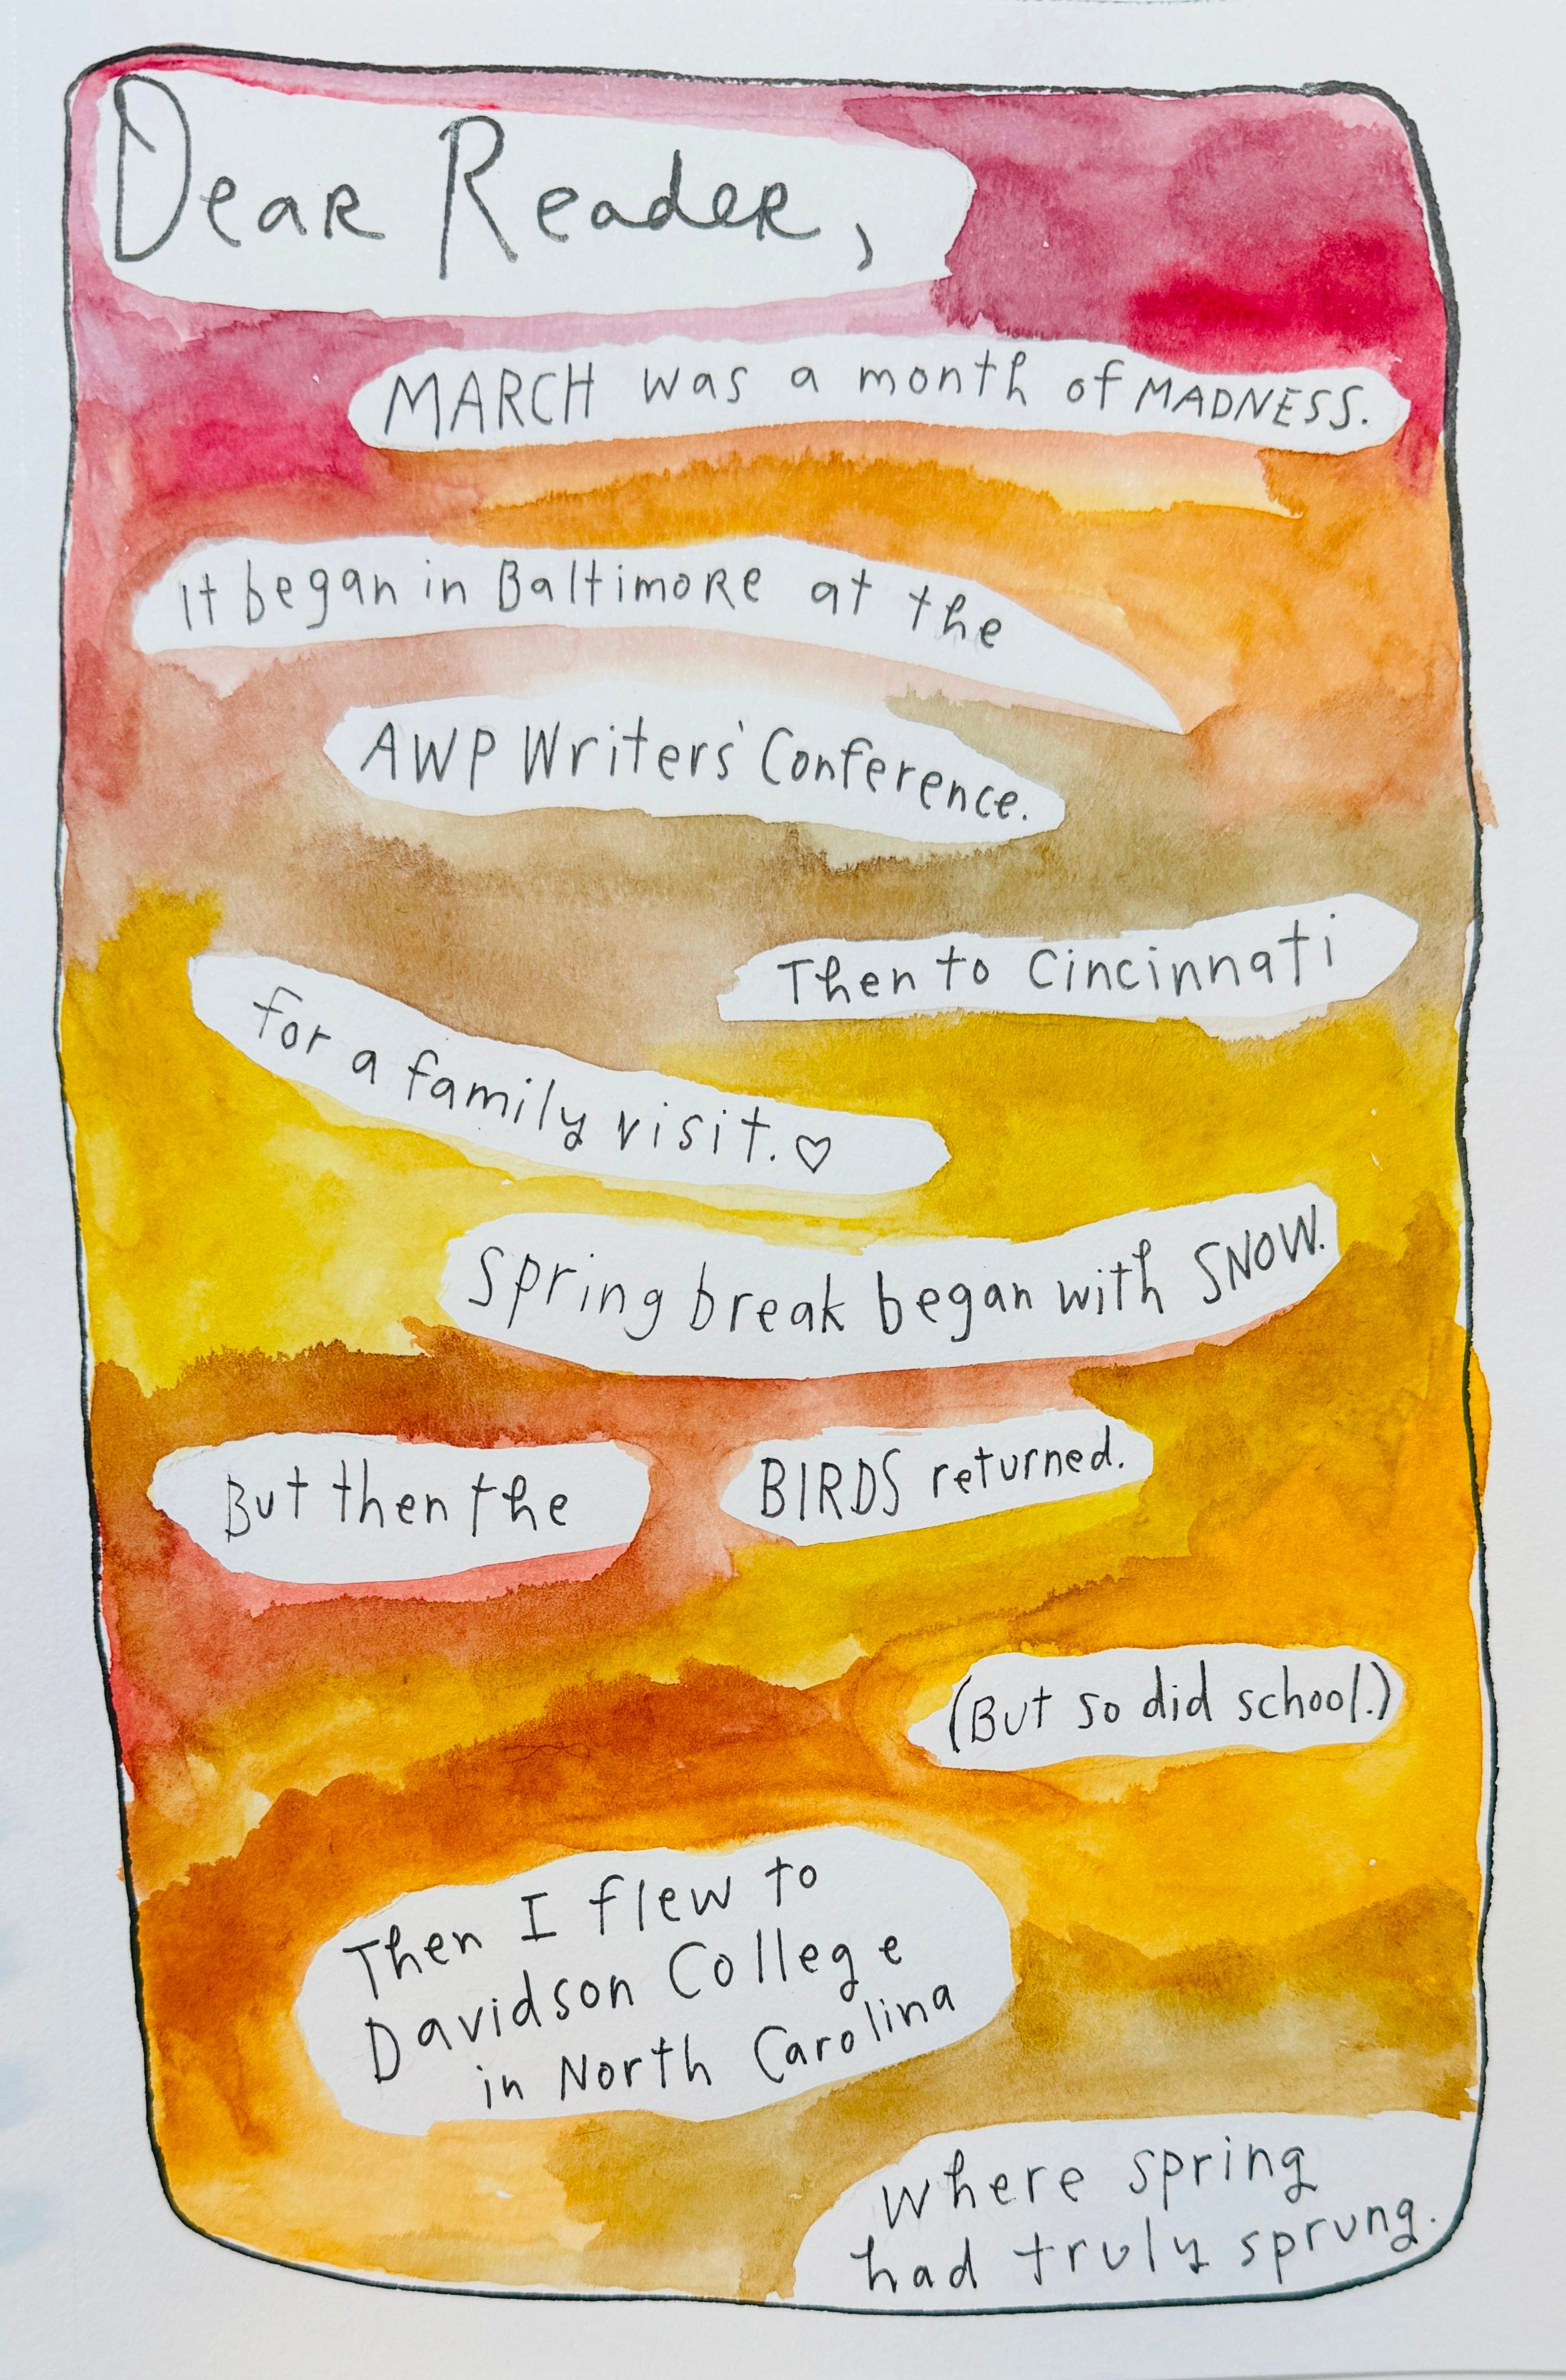 Dear Reader,
MARCH was a month of MADNESS.
It began in Baltimore at the
AWP Writers' Conference.
Then to Cincinnati
for a family visit. ♡
Spring break began with SNOW.
But then the
BIRDS returned.
(But so did school.)
Then I flew to
Davidson College
in North Carolina
where spring
had truly sprung.